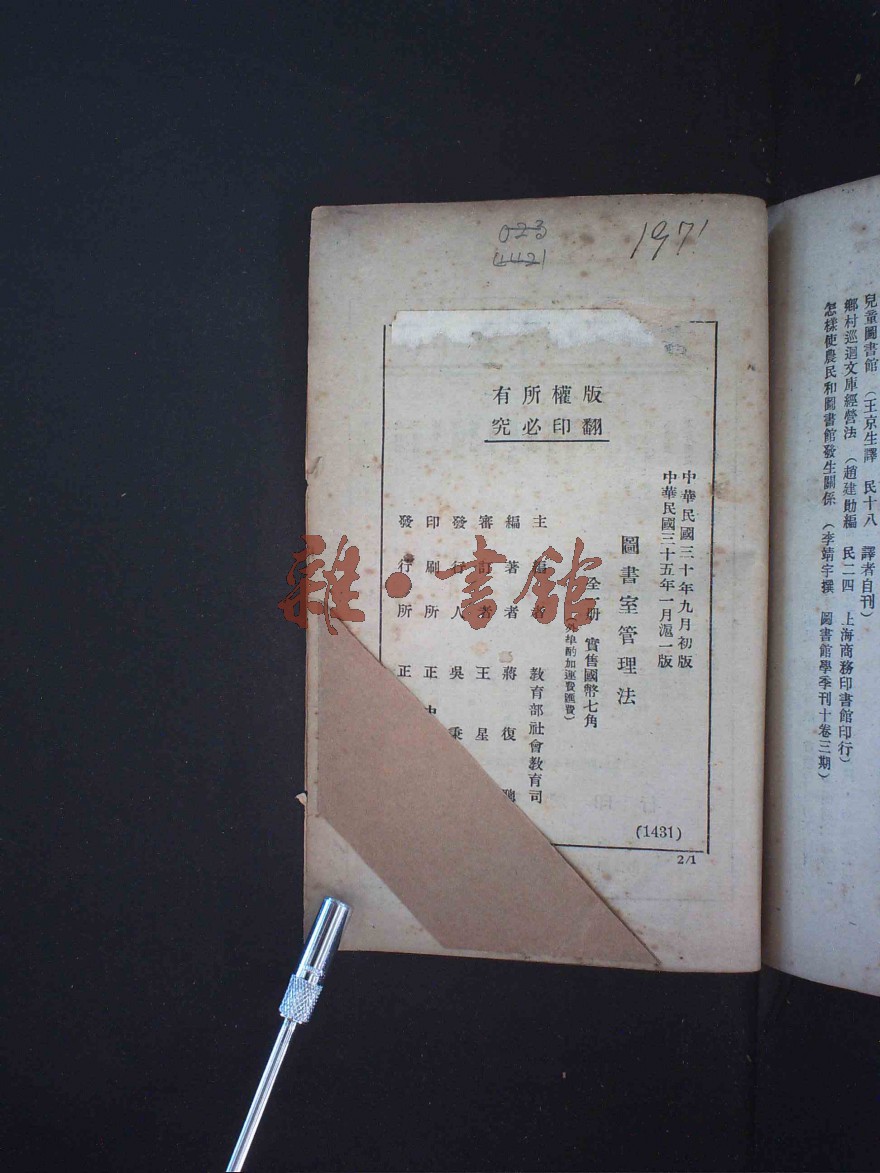 兒童圖書館 (王京生譯 民十八 譯者自刊)
鄉村巡迴文庫經營法 (趙建勛編 民二四 上海商務印書館印行)
怎樣使農民和圖書館發生關係 (李靖宇撰 圖書館學季刊十卷三期)
023
4421
1971
版權所有
翻印必究
中華民國三十年九月初版
中華民國三十五年一月滬一版
圖書室管理法
全一冊 實售國幣七角
酌加運費匯費)
主編者 教育部社會教育司
編著者 蔣復
審訂者 王星
發行人 吳秉
印刷所 正中
發行所 正
(1431)
2/1
雜·書館